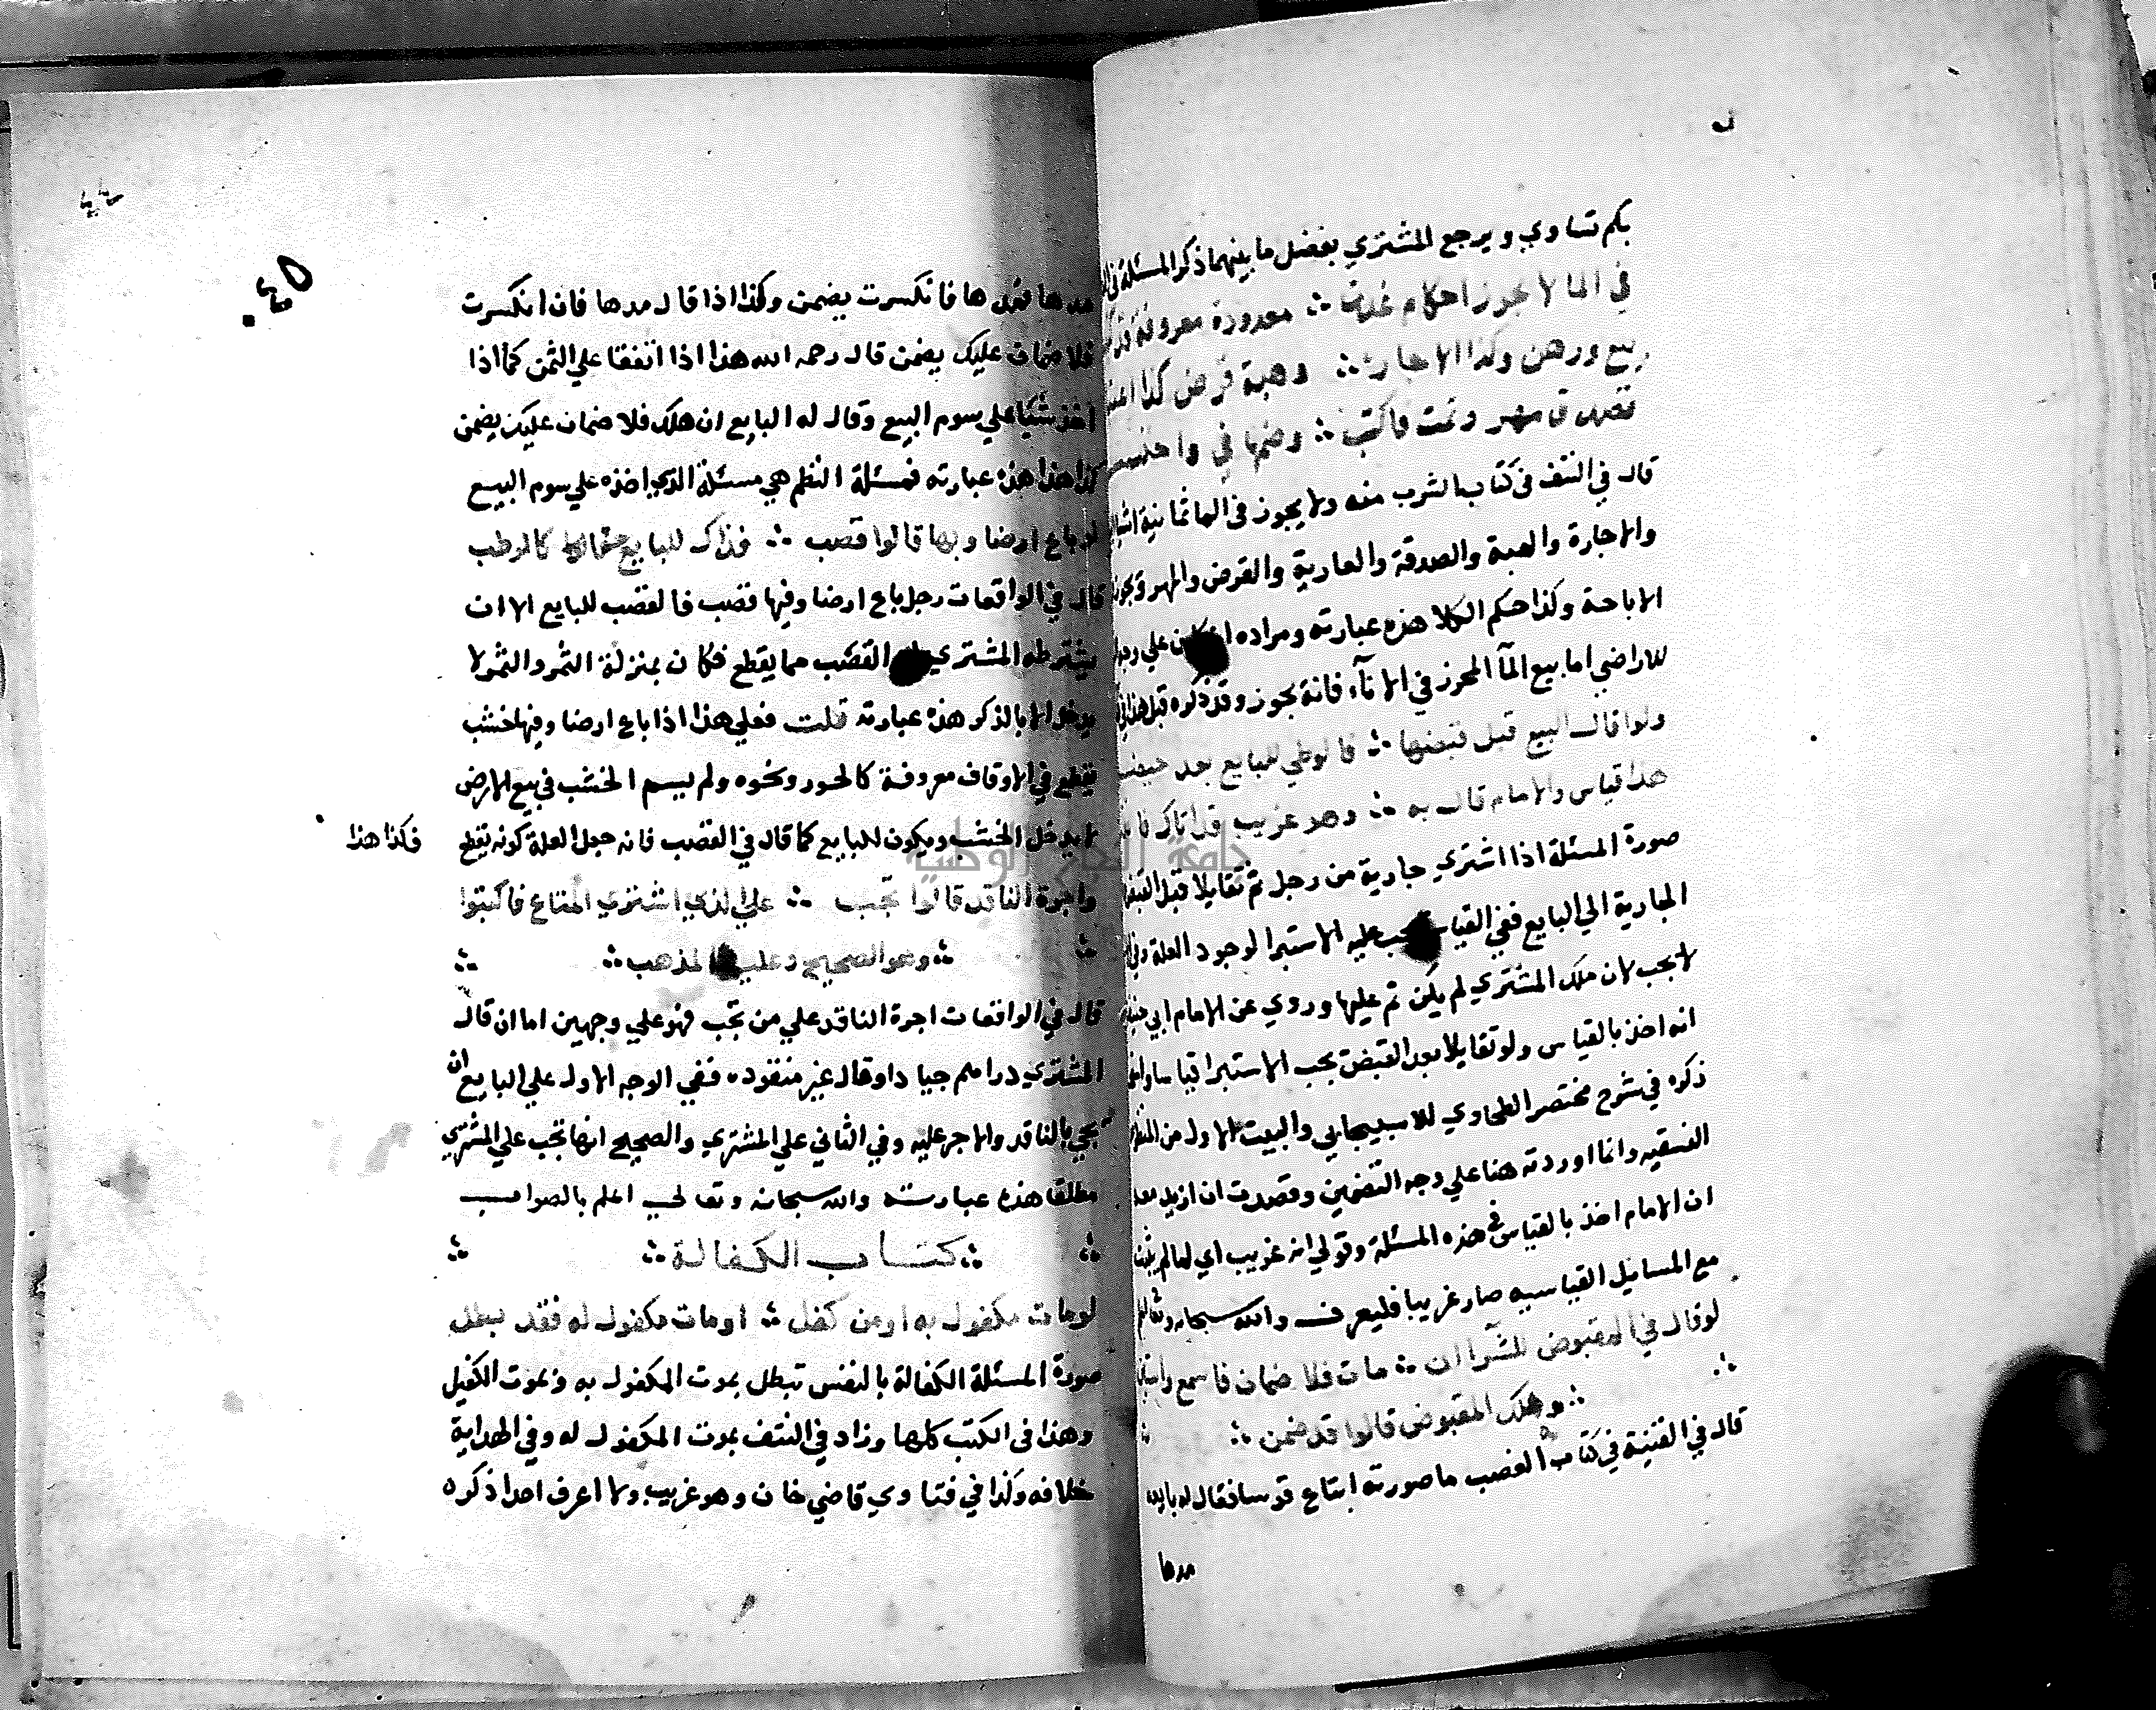 بكم تساوي ويرجع المشتري بفضل ما بينهما ذكر المسئلة في
في الما لا يجوز احكام غدت ∴ معدودة معروفة
بيع ورهن وكذا الاجارة ∴ وهبة قرض كذا
تصدق مهر وتمت فاكتب ∴ وضمها في
قال في النتف في كتاب الشرب منه ولا يجوز في الماء ثمانية اشيا
والاجارة والهبة والصدقة والعارية والقرض والمهر
الاباحة وكذا حكم الكلا هذه عبارته ومراده علي
للاراضي اما بيع المآ المحرز في الانآء فانه يجوز وقد ذكره قبل هذا
ولو اقال البيع قبل قبضها ∴ فالوطي للبايع بعد
هذا قياس والامام قال به ∴ وهو غريب قد اتاك
صورة المسئلة اذا اشتري جارية من رجل ثم تقايلا قبل القبض
الجارية الي البايع ففي القياس يجب عليه الاستبرا لوجود العلة وفي
لا يجب لان ملك المشتري لم يكن تم عليها وروي عن الامام ابي حنيفة
انه اخذ بالقياس ولو تقايلا بعد القبض يجب الاستبرا قياسا
ذكره في شرح مختصر الطحاوي للاسبيجابي والبيت الاول من
الفقيه وانما اوردته هنا علي وجه التضمين وقصدت ان ازيد
ان الامام اخذ بالقياس في هذه المسئلة وقولي انه غريب اي لما لم
مع المسايل القياسيه صار غريبا فليعرف والله سبحانه
لو قال في المقبوض للشرا ان ∴ مات فلا ضمان فاسمع
∴ وهلك المقبوض قالوا قد ضمن ∴
قال في القنية في كتاب الغصب ما صورته ابتاع قوسا فقال له بايعه
مدها
٠٤٥
مدها فمدها فانكسرت يضمن وكذا اذا قال مدها فان انكسرت
فلا ضمان عليك يضمن قال رحمه الله هذا اذا اتفقا علي الثمن كما اذا
اخذ شيئا علي سوم البيع وقال له البايع ان هلك فلا ضمان عليك يضمن
هذا هذه عبارته فمسئلة النظم هي مسئلة الذي اخذه علي سوم البيع
لو باع ارضا وبها قالوا قصب ∴ فذاك للبايع كالرطب
قال في الواقعات رجل باع ارضا وفيها قصب فالقصب للبايع الا ان
يشترطه المشتري القصب مما يقطع فكان بمنزلة الثمر والثمر لا
يدخل الا بالذكر هذه عبارته قلت فعلي هذا اذا باع ارضا وفيها خشب
يقطع في الاوقاف معروفة كالحور ونحوه ولم يسم الخشب في بيع الارض
لا يدخل الخشب ويكون للبايع كما قال في القصب فانه جعل العلة كونه يقطع
فكذا هذا
واجرة الناقد قالوا تجب ∴ علي الذي اشتري المتاع فاكتبوا
∴ وهو الصحيح وعليه المذهب ∴
قال في الواقعات اجرة الناقد علي من تجب فهو علي وجهين اما ان قال
المشتري دراهم جيادا وقال غير منقوده ففي الوجه الاول علي البايع ان
يجي بالناقد والاجر عليه وفي الثاني علي المشتري والصحيح انها تجب علي المشتري
مطلقا هذه عبارته والله سبحانه وتعالي اعلم بالصواب
∴ كتاب الكفالة ∴
لو مات مكفول به او من كفل ∴ او مات مكفول له فقد بطل
صورة المسئلة الكفالة بالنفس تبطل بموت المكفول به وبموت الكفيل
وهذا في الكتب كلها وزاد في النتف بموت المكفول له وفي الهداية
خلافه وكذا في فتاوي قاضي خان وهو غريب ولا اعرف احدا ذكره